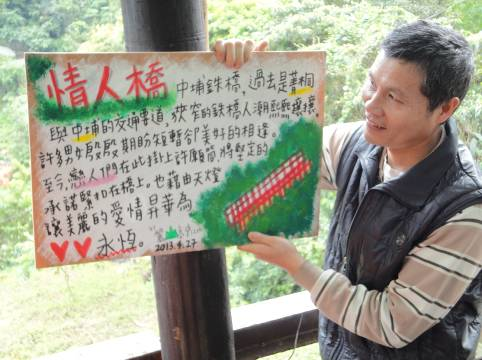 情人橋 中埔鉄橋，過去是菁桐
與中埔的交通要道，狹窄的鉄橋人潮熙熙攘攘，
許多男女殷殷期盼短暫卻美好的相逢。
至今，戀人們在此掛上許願筒，將堅定的
承諾緊扣在橋上。也藉由天燈
讓美麗的愛情昇華為
永恆。
2013.4.27